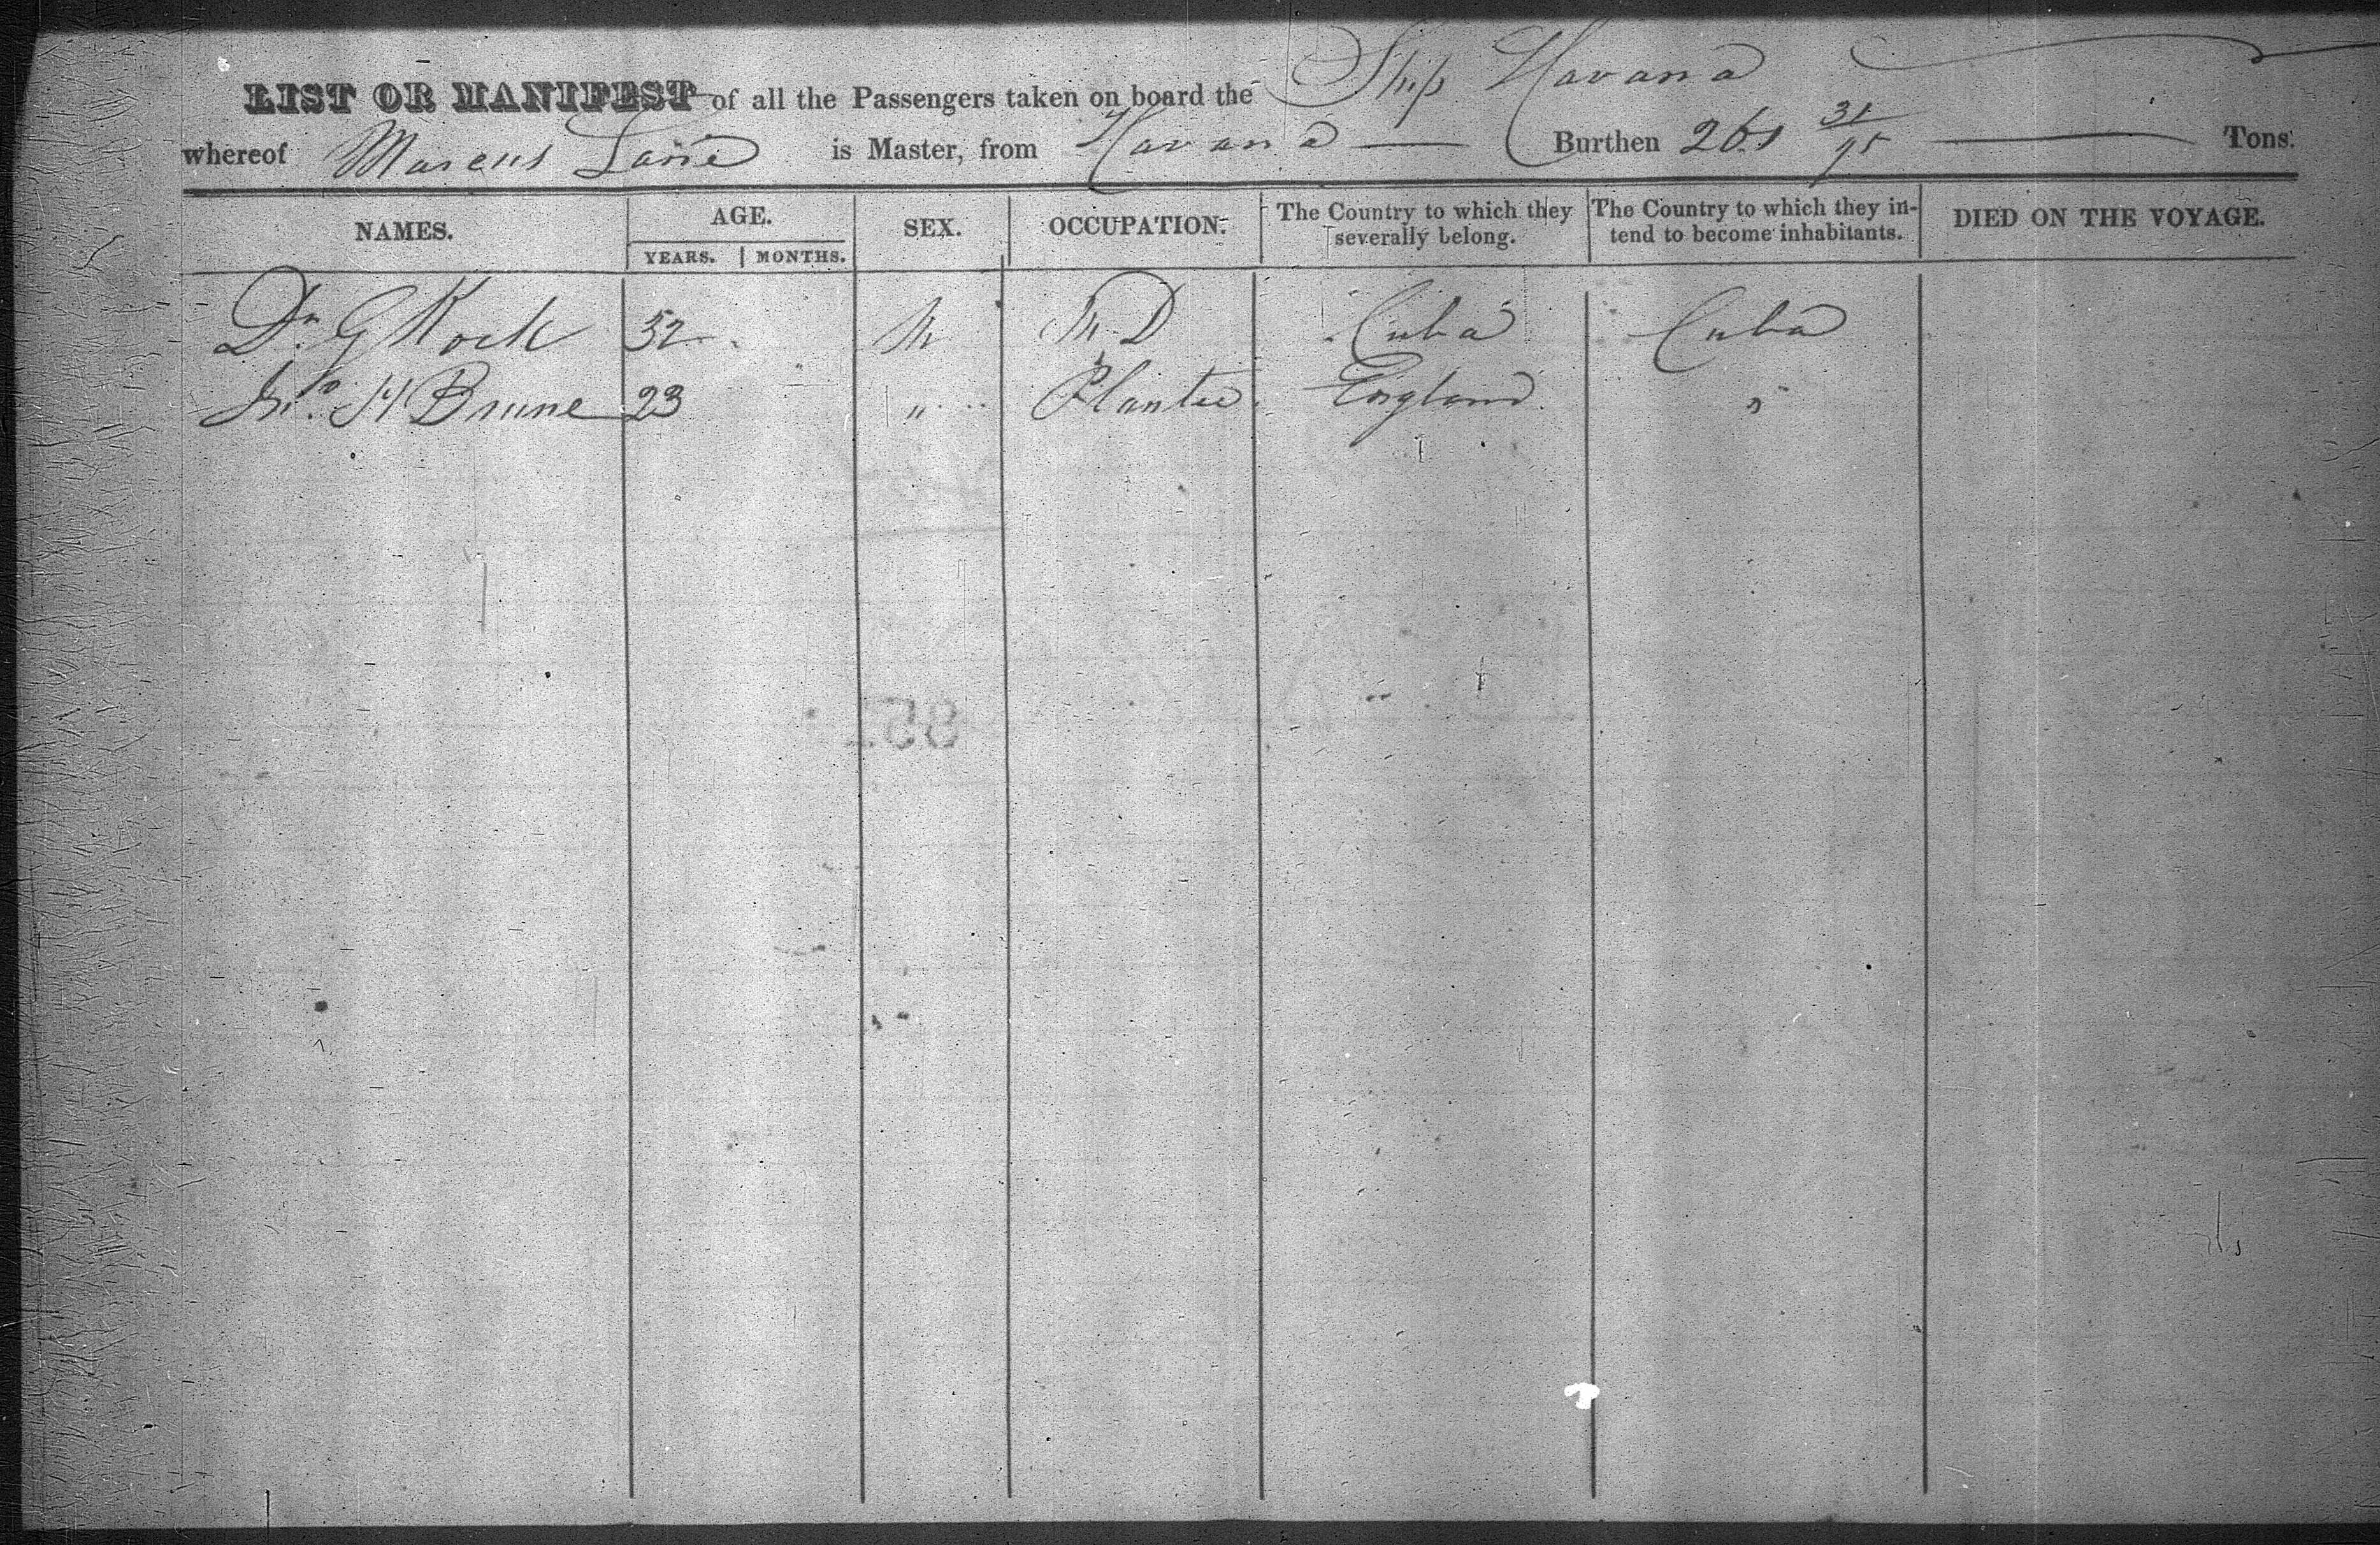 LIST OR MANIFEST of all the Passengers taken on board the Ship Havana
whereof Marcus Lane is Master, from Havana — Burthen 261 31/95 — Tons.
NAMES. AGE. YEARS. MONTHS. SEX. OCCUPATION. The Country to which they severally belong. The Country to which they intend to become inhabitants. DIED ON THE VOYAGE.
Dr. G Kock 32 M M.D Cuba Cuba
Jno. H Brune 23 " Planter England "